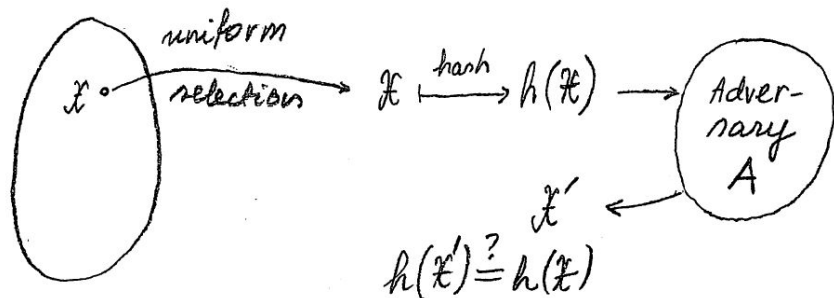 uniform
selection
x
x
hash
h(x)
Adver-
sary
A
x'
h(x') ?= h(x)